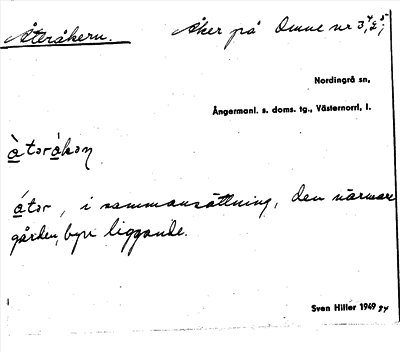 Återåkern. Åker på Omne nr 3,⁴ 2;⁵
Nordingrå sn,
Ångermanl. s. doms. tg., Västernorrl, l.
àtəråkəɳ
átər, i sammansättning, den närmare
gården, byn liggande.
Sven Hiller 1949 34